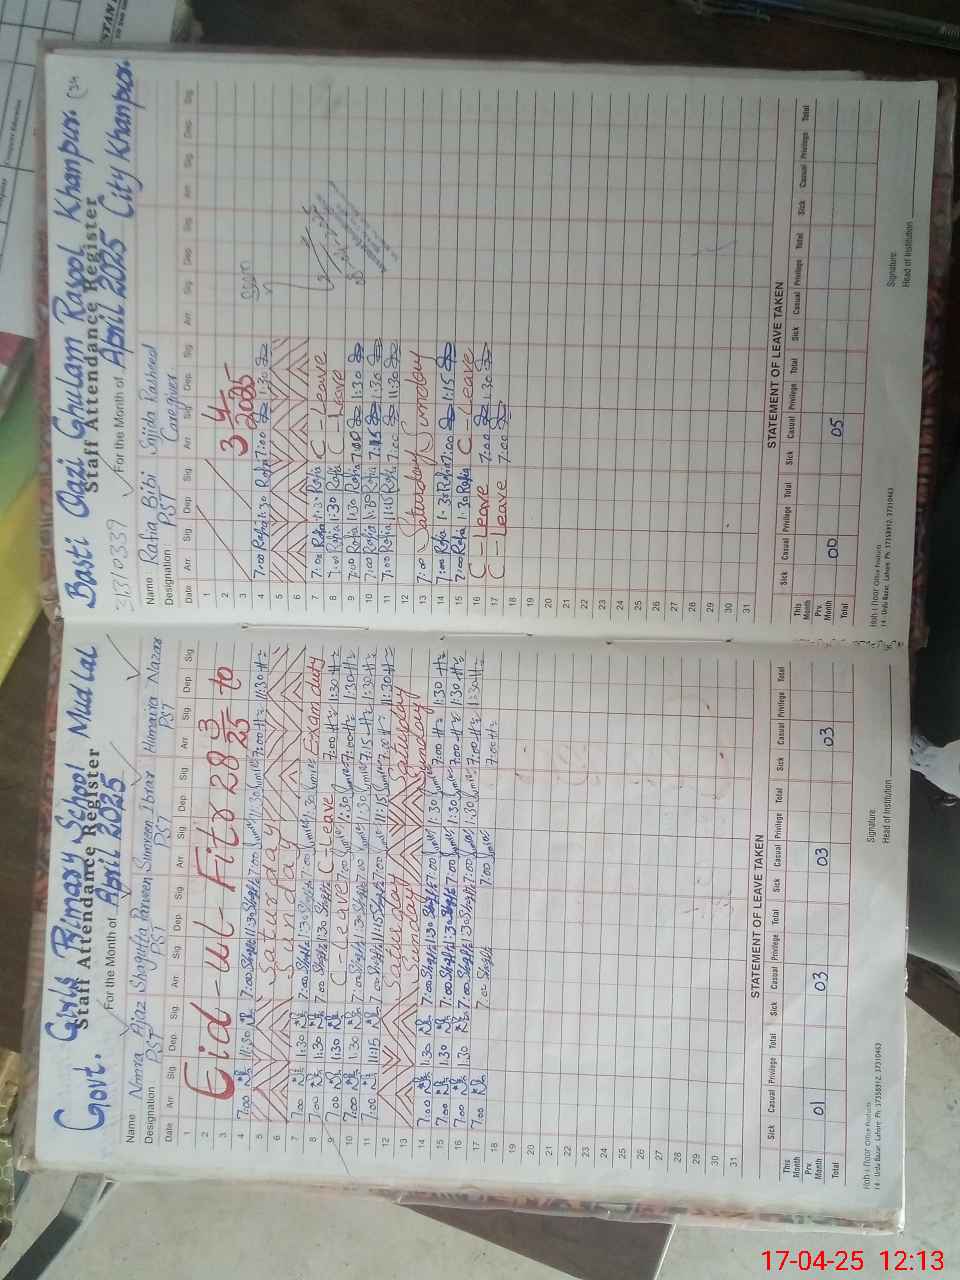 Govt. Girls Primary School Mud Lal
Staff Attendance Register
For the Month of April 2025
Name Nimra Ajaz Shagufta Parveen Sumreen Ibrar Humaira Nazar
Designation PST PST PST PST
Date Arr Sig Dep Sig Arr Sig Dep Sig Arr Sig Dep Sig Arr Sig Dep Sig
1
2
3
Eid-ul-Fitr 28 3/25 to
4 7:00 11:30 7:00 11:30 7:00 11:30 7:00 11:30
5 Saturday
6 Sunday
7 7:00 1:30 7:00 1:30 7:00 1:30 Exam duty
8 7:00 1:30 7:00 1:30 C-Leave 7:00 1:30
9 7:00 1:30 C-Leave 7:00 1:30 7:00 1:30
10 7:00 1:30 7:00 1:30 7:00 1:30 7:15 1:30
11 7:00 11:15 7:00 11:15 7:00 11:15 7:00 11:30
12 Saturday Saturday
13 Sunday Sunday
14 7:00 1:30 7:00 1:30 7:00 1:30 7:00 1:30
15 7:00 1:30 7:00 1:30 7:00 1:30 7:00 1:30
16 7:00 1:30 7:00 1:30 7:00 1:30 7:00 1:30
17 7:00 7:00 7:00 7:00
18
19
20
21
22
23
24
25
26
27
28
29
30
31
STATEMENT OF LEAVE TAKEN
Sick Casual Privilege Total Sick Casual Privilege Total Sick Casual Privilege Total Sick Casual Privilege Total
This Month
Prv. Month 01 03 03 03
Total
Signature
Head of Institution
Roh-i-Noor Office Products
14 - Urdu Bazar, Lahore. Ph: 37358912, 37310463
Basti Qazi Ghulam Rasool Khanpur.
Staff Attendance Register
31310339
For the Month of April 2025 City Khanpur.
Name Rafia Bibi Sajida Rasheed
Designation PST Caregiver
Date Arr Sig Dep Sig Arr Sig Dep Sig Arr Sig Dep Sig Arr Sig Dep Sig
1
2
3 3 4/2025
4 7:00 Rafia 1:30 Rafia 7:00 1:30
5
6
7 7:00 Rafia 1:30 Rafia C-Leave
8 7:00 Rafia 1:30 Rafia C-Leave
9 7:00 Rafia 1:30 Rafia 7:00 1:30
10 7:00 Rafia 1:30 Rafia 7:15 1:30
11 7:00 Rafia 11:15 Rafia 7:00 11:30
12 Saturday
13 7:00 Sunday
14 7:00 Rafia 1:30 Rafia 7:00 1:15
15 7:00 Rafia 1:30 Rafia C-Leave
16 C-Leave 7:00 1:30
17 C-Leave 7:00
18
19
20
21
22
23
24
25
26
27
28
29
30
31
STATEMENT OF LEAVE TAKEN
Sick Casual Privilege Total Sick Casual Privilege Total Sick Casual Privilege Total Sick Casual Privilege Total
This Month
Prv. Month 00 05
Total
Signature
Head of Institution
Roh-i-Noor Office Products
14 - Urdu Bazar, Lahore. Ph: 37358912, 37310463
17-04-25 12:13